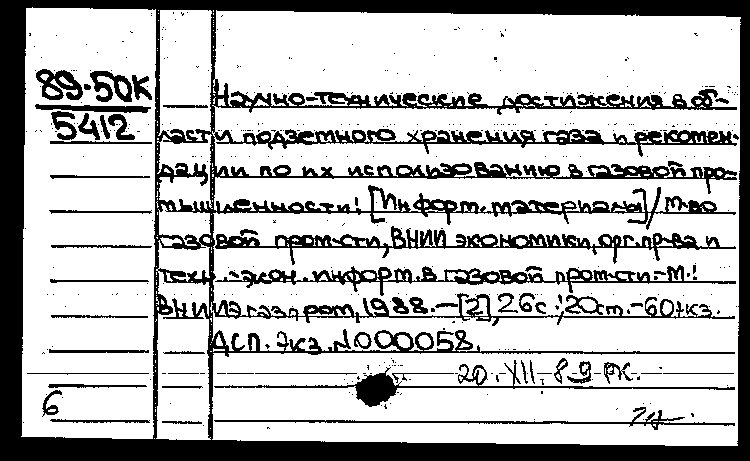 89-50К
5412
Научно-технические достижения в об-
ласти подземного хранения газа и рекомен-
дации по их использованию в газовой про-
мышленности: [Информ. материалы] / М-во
газовой пром-сти, ВНИИ экономики, орг. пр-ва и
техн.-экон. информ. в газовой пром-сти.-М.:
ВНИИЭгазпром, 1988.-[2], 26с.; 20см.-60экз.
ДСП. Экз. N000058.
20.XII.89 РК.
6